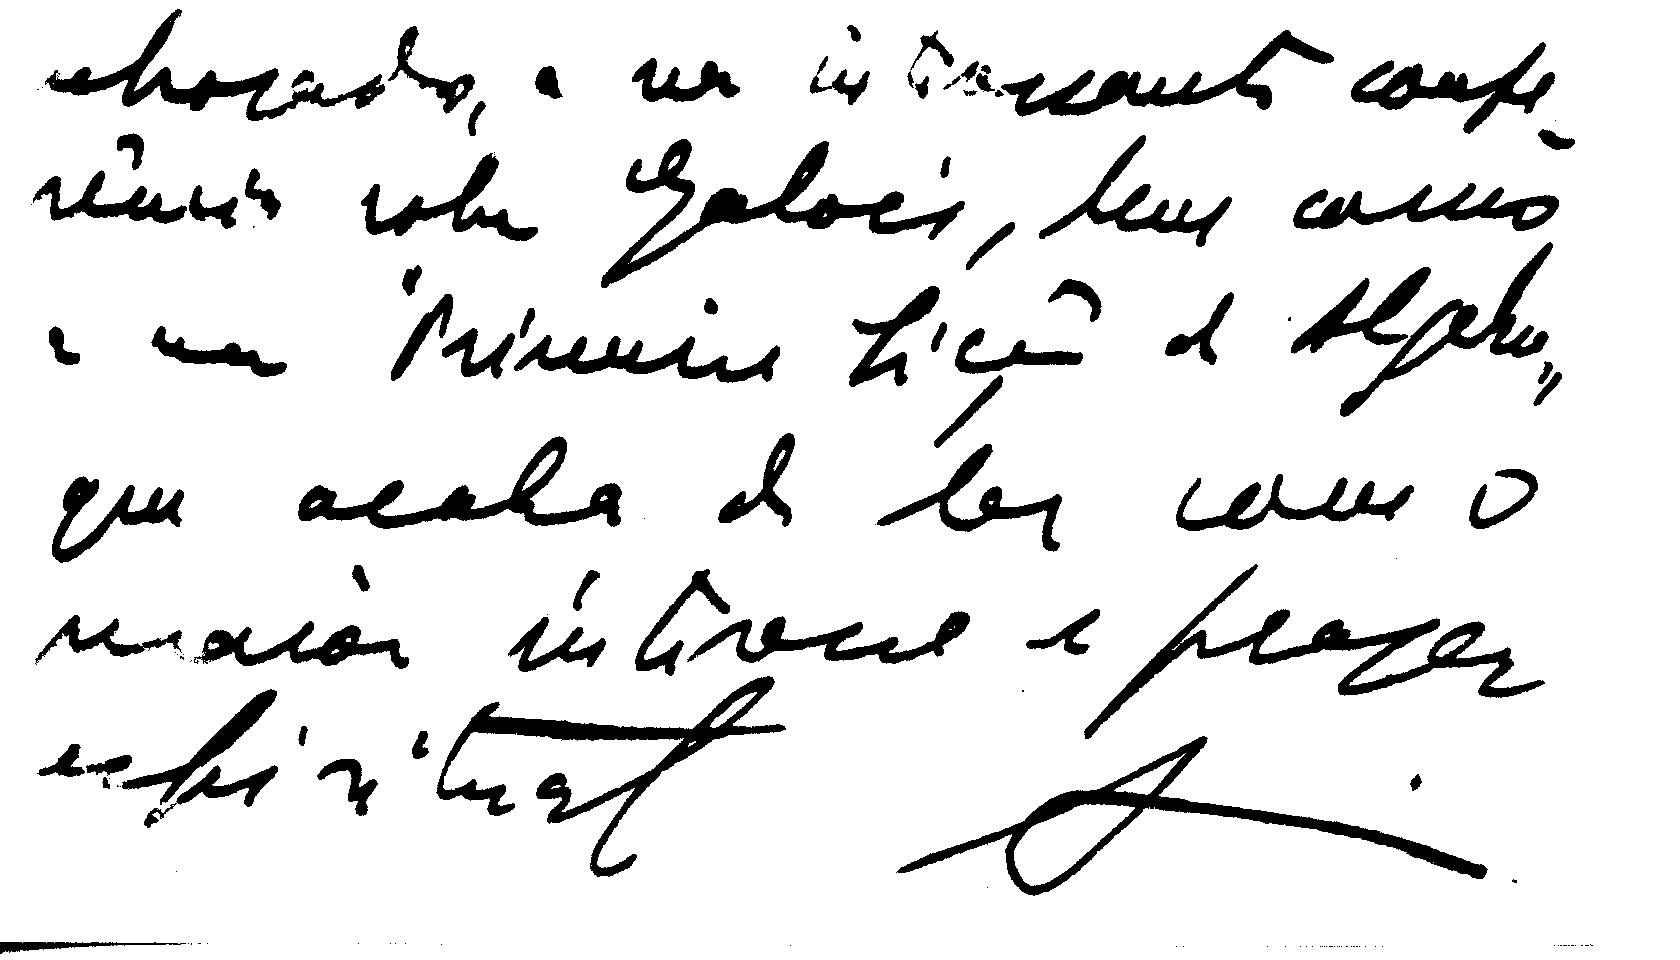 nhorado, a sua interessante confe-
rência sobre Galois, bem como
a sua "Primeira Lição de Algebra",
que acaba de ler com o
maior interesse e prazer
espiritual